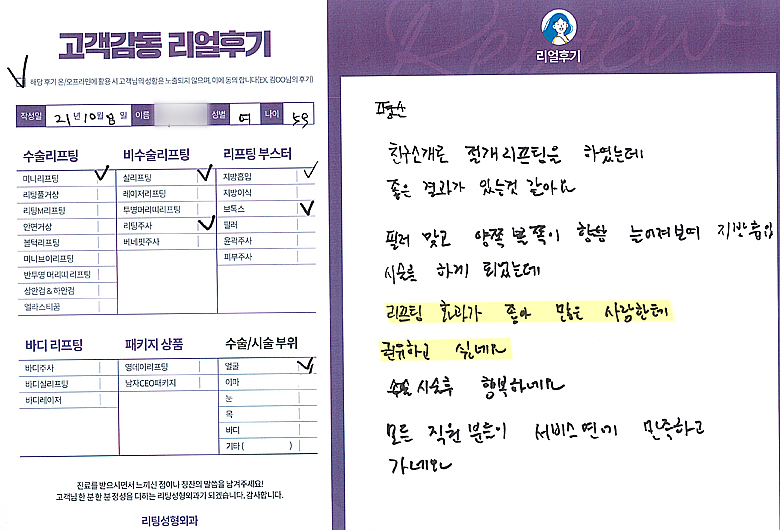 고객감동 리얼후기
해당 후기 온/오프라인에 활용 시 고객님의 성함은 노출되지 않으며, 이에 동의 합니다(EX. 김OO님의 후기)
작성일 21년 10월 8일 이름 성별 여 나이 59
수술리프팅
미니리프팅
리팅풀거상
리팅M리프팅
안면거상
볼턱리프팅
미니브이리프팅
반투명 머리띠 리프팅
상안검&하안검
엘라스티꿈
비수술리프팅
실리프팅
레이저리프팅
투명머리띠리프팅
리팅주사
베네핏주사
리프팅 부스터
지방흡입
지방이식
보톡스
필러
윤곽주사
피부주사
바디 리프팅
바디주사
바디실리프팅
바디레이저
패키지 상품
영데이리프팅
남자CEO패키지
수술/시술 부위
얼굴
이마
눈
목
바디
기타 ( )
진료를 받으시면서 느끼신 점이나 칭찬의 말씀을 남겨주세요!
고객님 한 분 한 분 정성을 다하는 리팅성형외과가 되겠습니다. 감사합니다.
리팅성형외과
Review
리얼후기
친구소개로 절개리프팅을 하였는데
좋은 결과가 있는것 같아요
필러 맞고 양쪽 볼쪽이 항상 늘어져보여 지방흡입
시술을 하게 되었는데
리프팅 효과가 좋아 많은 사람한테
권유하고 싶네요
시술후 행복하네요
모든 직원분들이 서비스면에 만족하고
가네요